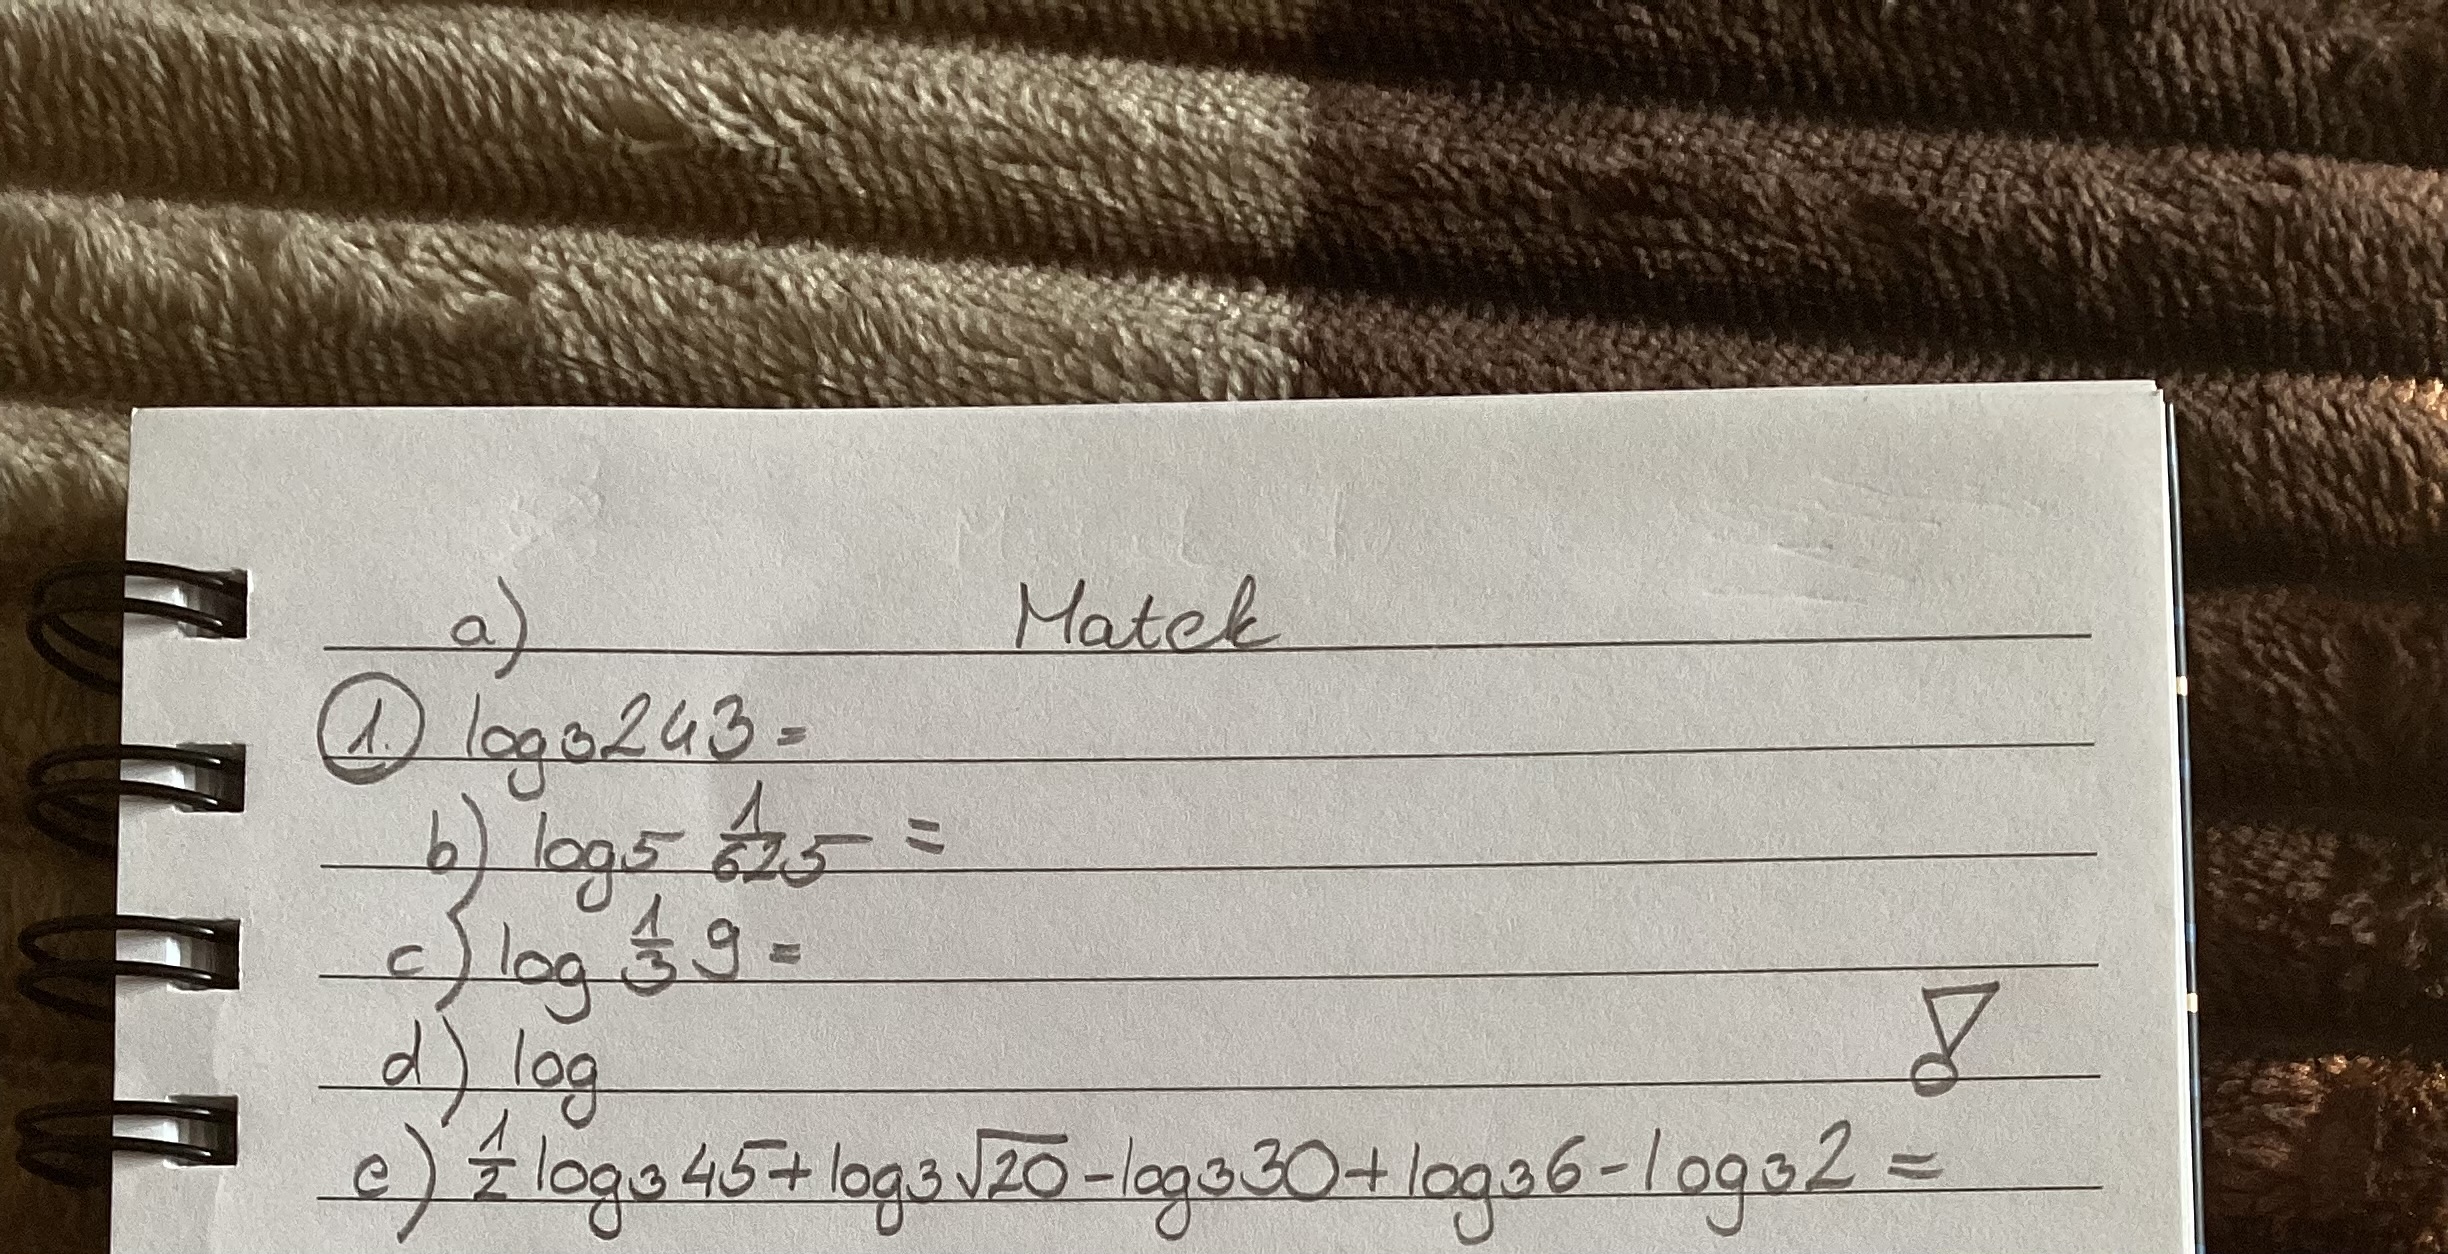 a) Matek
1. log₃243=
b) log₅ 1/625 =
c) log 1/3 9 =
d) log
e) 1/2 log₃45+log₃√20-log₃30+log₃6-log₃2=